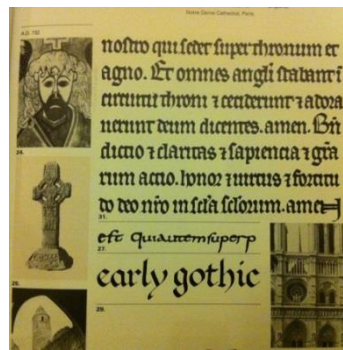 Notre Dame Cathedral, Paris.
A.D. 732
nostro qui sedet super thronum et
agno. Et omnes angli stabant ī
circuitu throni ⁊ ceciderunt ⁊ adora
uerunt deum dicentes. amen. Bñ
dictio ⁊ claritas ⁊ sapiencia ⁊ grā
rum actio. honor ⁊ uirtus ⁊ fortitu
do deo nr̄o in sc̄la sc̄lorum. amen
24.
31.
est quiautemsuperp
27.
early gothic
25.
29.